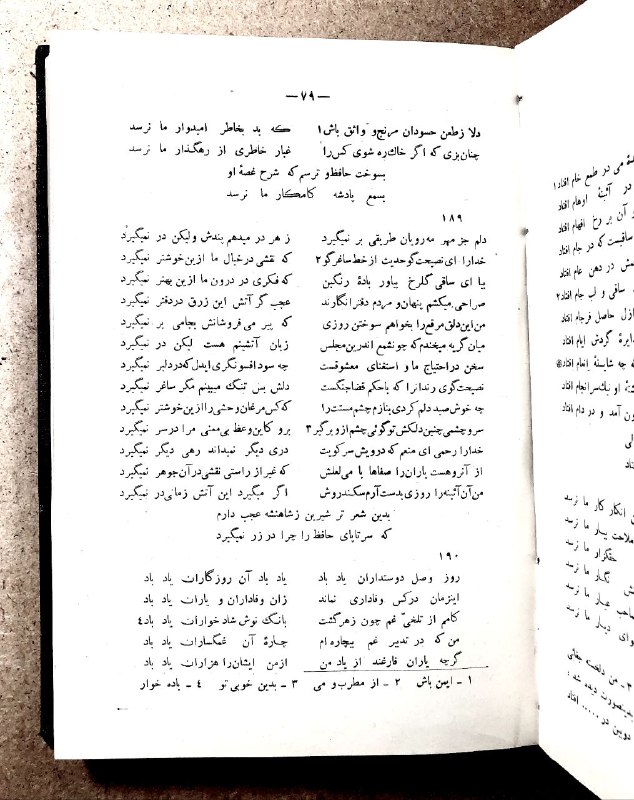 — ۷۹ —
دلا ز طعن حسودان مرنج و واثق باش۱ که بد بخاطر امیدوار ما نرسد
چنان بزی که اگر خاک ره شوی کس را غبار خاطری از رهگذار ما نرسد
بسوخت حافظ و ترسم که شرح غصهٔ او
بسمع پادشه کامگار ما نرسد
۱۸۹
دلم جز مهر مه رویان طریقی بر نمیگیرد ز هر در میدهم پندش ولیکن در نمیگیرد
خدا را ای نصیحت گو حدیث از خط ساغر گو۲ که نقشی در خیال ما از این خوشتر نمیگیرد
بیا ای ساقی گلرخ بیاور بادهٔ رنگین که فکری در درون ما از این بهتر نمیگیرد
صراحی میکشم پنهان و مردم دفتر انگارند عجب گر آتش این زرق در دفتر نمیگیرد
من این دلق مرقع را بخواهم سوختن روزی که پیر می فروشانش بجامی بر نمیگیرد
میان گریه میخندم که چون شمع اندرین مجلس زبان آتشینم هست لیکن در نمیگیرد
سخن در احتیاج ما و استغنای معشوقست چه سود افسونگری ایدل که در دلبر نمیگیرد
نصیحت گوی رندانرا که با حکم قضا جنگست دلش بس تنگ میبینم مگر ساغر نمیگیرد
چه خوش صید دلم کردی بنازم چشم مستت را که کس مرغان وحشی را از این خوشتر نمیگیرد
سرو چشمی چنین دلکش تو گوئی چشم از و بر گیر۳ برو کاین وعظ بی معنی مرا در سر نمیگیرد
خدا را رحمی ای منعم که درویش سر کویت دری دیگر نمیداند رهی دیگر نمیگیرد
از آنروهست یاران را صفاها با می لعلش که غیر از راستی نقشی در آن جوهر نمیگیرد
من آن آئینه را روزی بدست آرم سکندروش اگر میگیرد این آتش زمانی در نمیگیرد
بدین شعر تر شیرین ز شاهنشه عجب دارم
که سر تا پای حافظ را چرا در زر نمیگیرد
۱۹۰
روز وصل دوستداران یاد باد یاد باد آن روزگاران یاد باد
اینزمان در کس وفاداری نماند زان وفاداران و یاران یاد باد
کامم از تلخی غم چون زهر گشت بانگ نوش شاد خواران یاد باد۴
من که در تدبیر غم بیچاره ام چارهٔ آن غمگساران یاد باد
گرچه یاران فارغند از یاد من از من ایشان را هزاران یاد باد
۱ - ایمن باش ۲ - از مطرب و می ۳ - بدین خوبی تو ۴ - باده خوار
می در طمع خام افتاد۱
در آئینهٔ اوهام افتاد
ساقیست که در جام افتاد
در دهن عام افتاد
ساقی و لب جام افتاد۲
ازل حاصل فرجام افتاد
گردش ایام افتاد
چه شایستهٔ انعام افتاد
نیک سرانجام افتاد
آمد و در دام افتاد
انکار کار ما نرسد
ملاحت بیار ما نرسد
حقگزار ما نرسد
نگار ما نرسد
صاحب عیار ما نرسد
دیار ما نرسد
۳ - من
دیده شد
دوبین در ..... افتاد